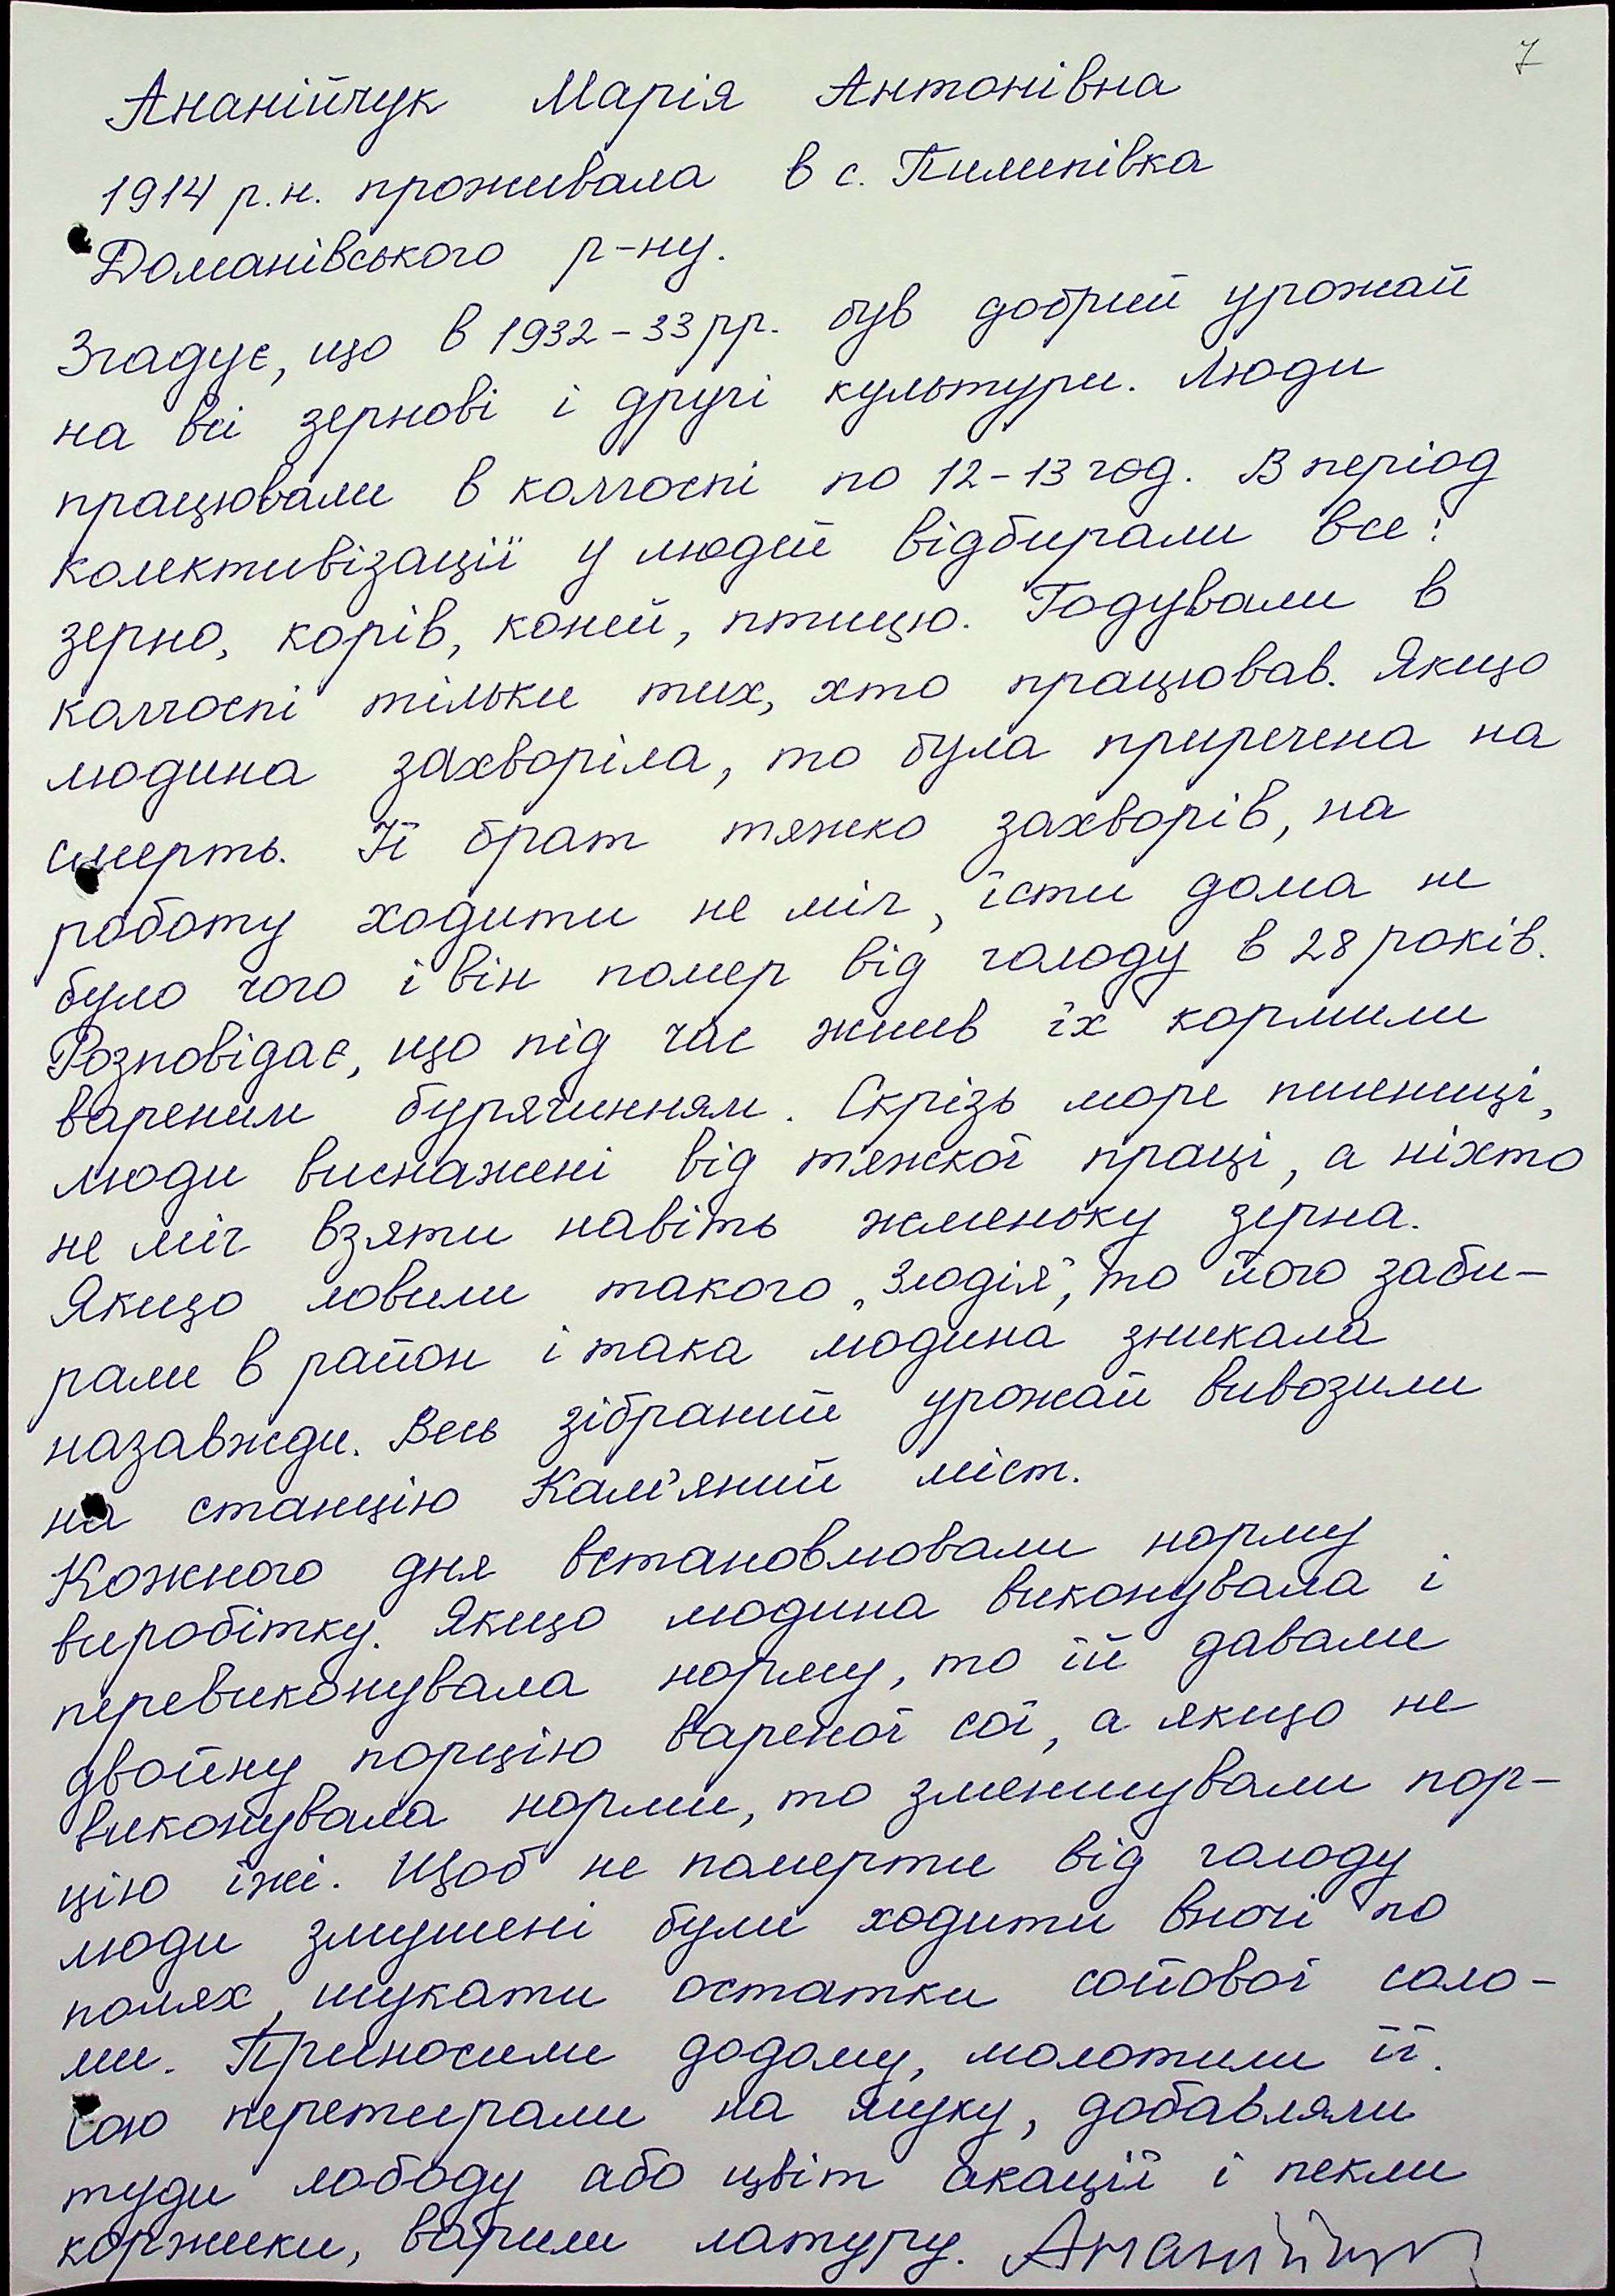 7
Ананійчук Марія Антонівна
1914 р.н. проживала в с. Пилипівка
Доманівського р-ну.
Згадує, що в 1932-33 рр. був добрий урожай
на всі зернові і другі культури. Люди
працювали в колгоспі по 12-13 год. В період
колективізації у людей відбирали все:
зерно, корів, коней, птицю. Годували в
колгоспі тільки тих, хто працював. Якщо
людина захворіла, то була приречена на
смерть. Її брат тяжко захворів, на
роботу ходити не міг, їсти дома не
було чого і він помер від голоду в 28 років.
Розповідає, що під час жнив їх кормили
вареним бурячинням. Скрізь море пшениці,
люди виснажені від тяжкої праці, а ніхто
не міг взяти навіть жменьку зерна.
Якщо ловили такого „Злодія", то його заби-
рали в район і така людина зникала
назавжди. Весь зібраний урожай вивозили
на станцію Кам'яний міст.
Кожного дня встановлювали норму
виробітку. Якщо людина виконувала і
перевиконувала норму, то їй давали
двойну порцію вареної сої, а якщо не
виконувала норми, то зменшували пор-
цію їжі. Щоб не померти від голоду
люди змушені були ходити вночі по
полях, шукати остатки сойової соло-
ми. Приносили додому, молотили її.
Сою перетирали на муку, добавляли
туди лободу або цвіт акації і пекли
коржики, варили матуру. Ананійчук